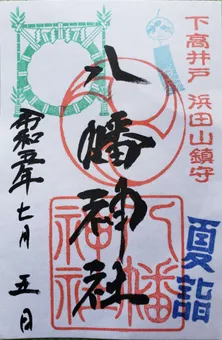 下高井戸 浜田山鎮守
八幡神社
夏詣
令和五年 七月 五日
八幡
神社